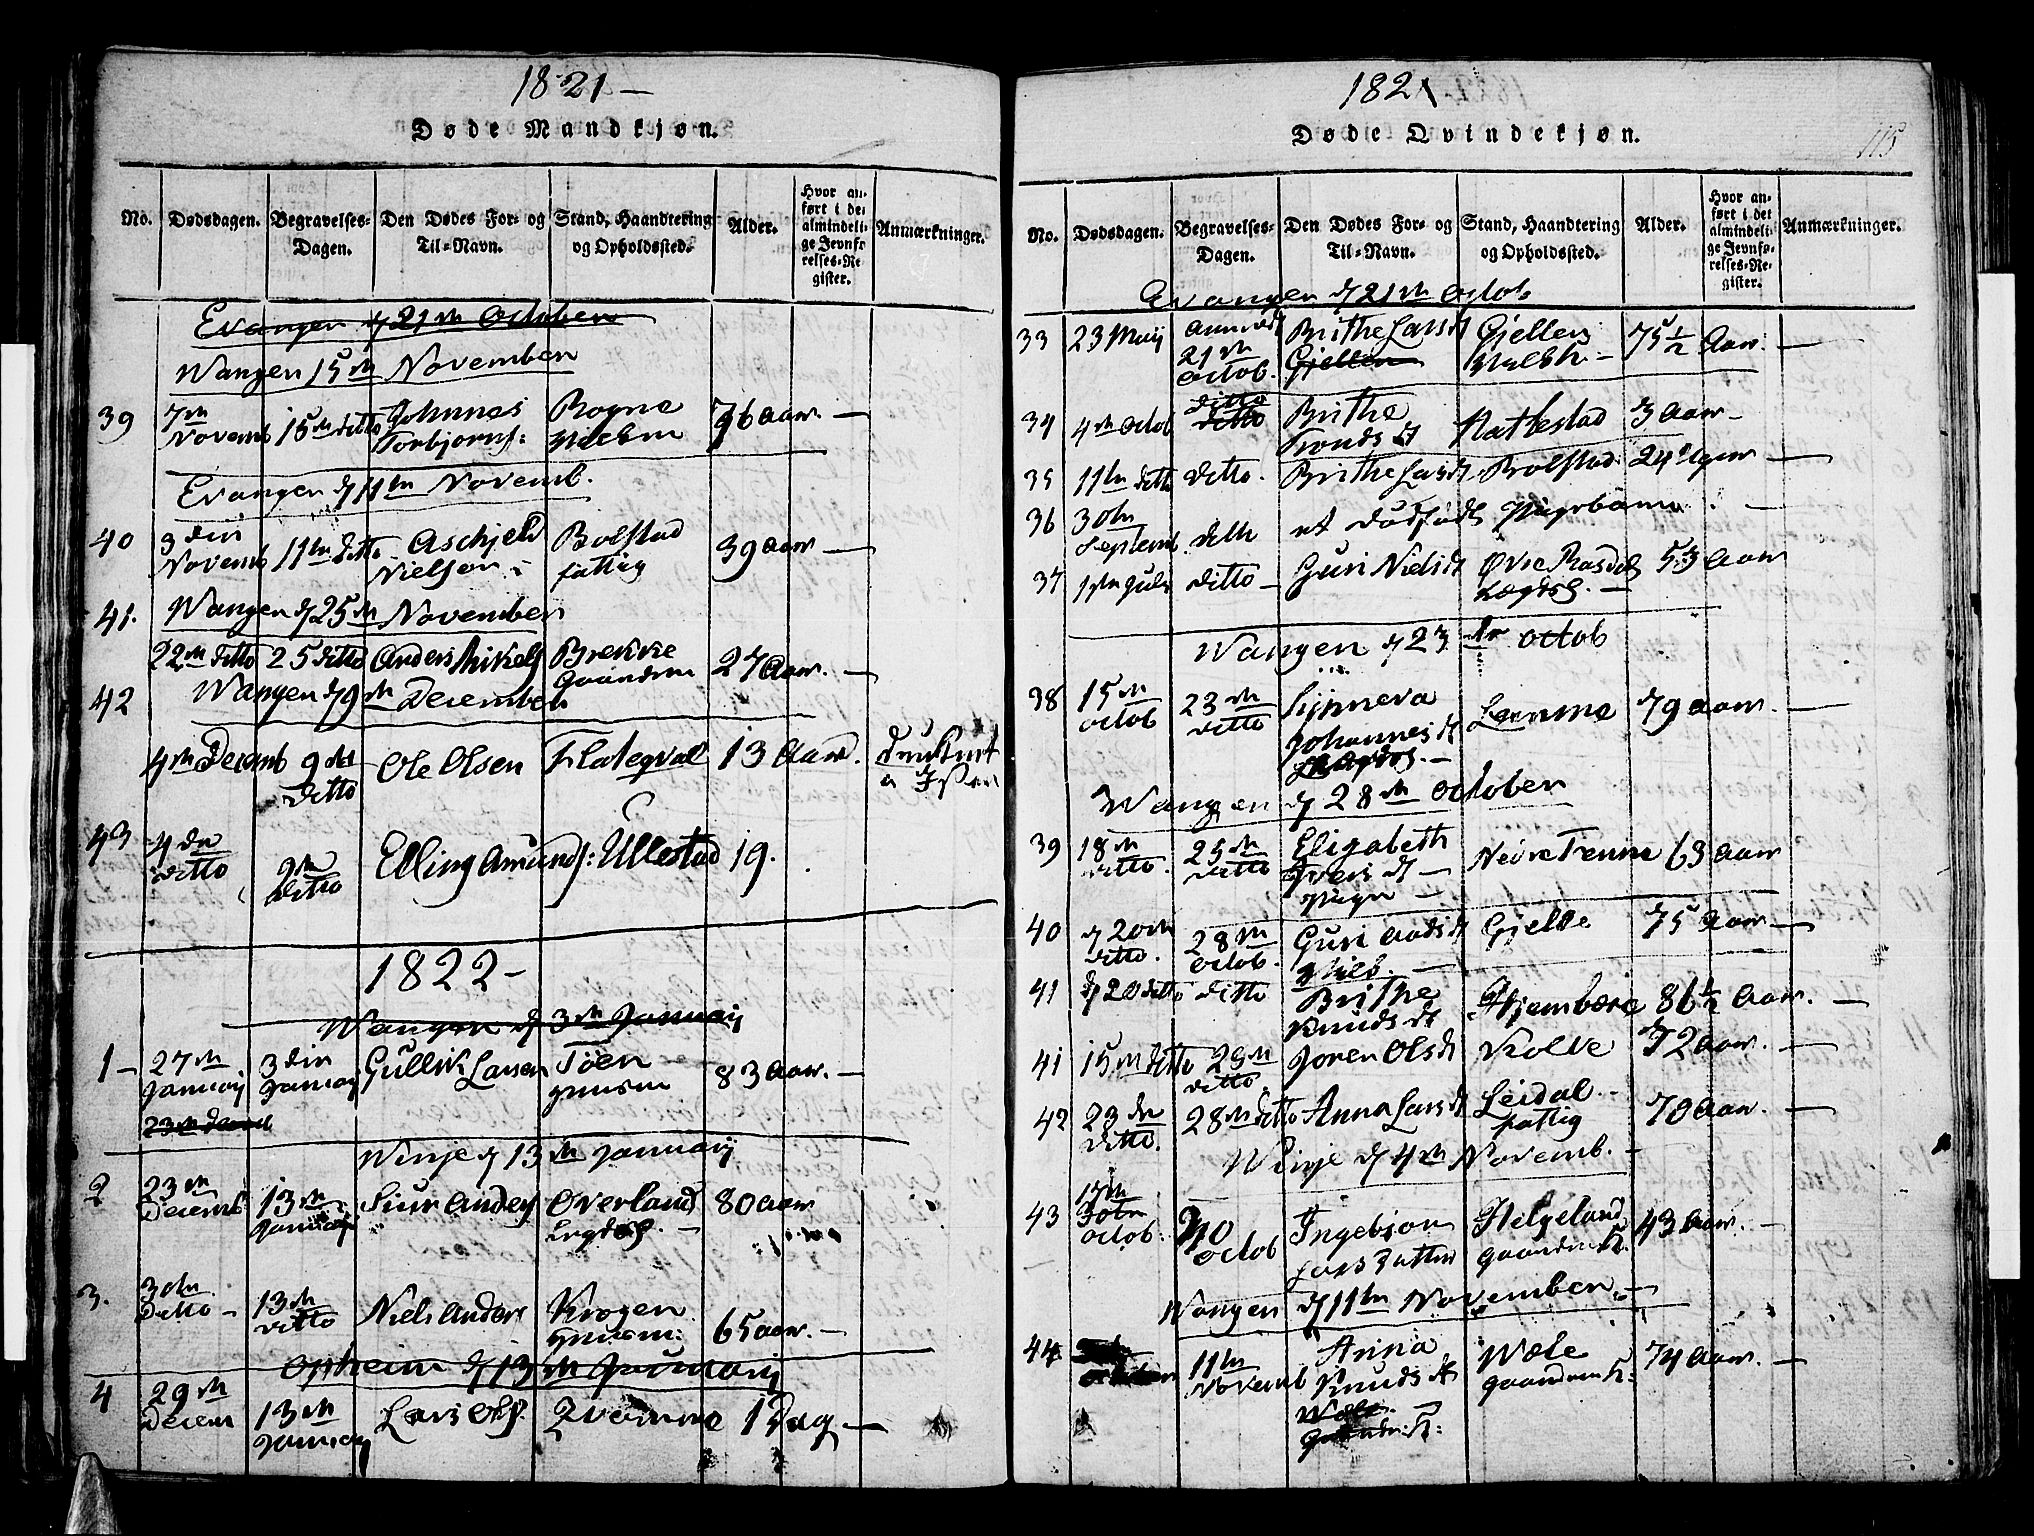 1821 –
Døde Mandkjøn.
No.
Dødsdagen.
Begravelses-
Dagen.
Den Dødes For- og
Til-Navn.
Stand, Haandtering
og Opholdssted.
Alder.
Hvor an-
ført i det
almindeli-
ge Jevnfø
relses-Re-
gister.
Anmærkninger.
Evangen d 21de October
Wangen 15de November
39 7de Novemb 15de ditto Johnnes Torbjørns: Rogne 76 Aar –
Evangen d 11te Novemb.
40 3die Novemb 11te ditto Aschjeld Nielsen Bolstad fattig 39 Aar –
41. Wangen d 25de November
22de ditto 25 ditto Anders Mikels Brekke Gaardm 27 Aar. –
42 Wangen d 9de December
4de Decemb 9de ditto Ole Olsen Flateqval 13 Aar.
43 4de ditto 9de ditto Elling Amunds: Ullestad 19.
1822 –
Wangen d 3de Januarj
1 – 27de Januarj 3die Januarj Gullik Larsen Töen 83 Aar. –
Winje d 13de Januarij
2 23de Decemb 13de Januar Siur Anders Øverland Lægds 80 Aar
3. 30te Ditto – 13de ditto Niels Anders Krogen 65 Aar. –
Opheim d 13de Januarij
4 29de Decem 13de Januarj Lars Ols. 1 Dag –
1821
Døde Qvindekjøn.
115
No.
Dødsdagen.
Begravelses-
Dagen.
Den Dødes For- og
Til-Navn.
Stand, Haandtering
og Opholdssted.
Alder.
Hvor an-
ført i det
almindeli-
ge Jevnfø-
relses-Re-
gister.
Anmærkninger.
Evangen d 21de Octob
33 23 Maij 21de octob. Brithe Larsd Gjelle 75 1/2 Aar. –
34 4de Octob ditto Brithe Tronds d Nattestad 3 Aar –
35 11te ditto ditto. Brithe Larsd Bolstad 24 Uger –
36 30te Septemb ditto et dødfødt Pigebarn . –
37 ditto – Guri Niels d Øvre Rasdal Lægds. – 53 Aar
Wangen d 23de octob
38 15de octob 23de ditto Sijnneva Johannes d Lægds. – Lemme 79 Aar. –
Wangen d 28de October
39 18de ditto. 25de ditto Elizabeth Ivers d – Pige – Nedre Tenne 63 Aar
40 d 20de ditto. 28de octob. Guri Aads d Gjelle 75 Aar –
41 d 20 ditto ditto Brithe Knuds d Hjembære 86 1/2 Aar. –
41 15de ditto 29de ditto. Joren Ols d Kolve 72 Aar. –
42 23de ditto. 28de ditto Anna Lars d Leidal – fattig 70 Aar. –
Winje d 4de Novemb. –
43 octob. octob Ingebjør Lars Datter Helgeland Gaardm K. 43 Aar. –
Wangen d 11te November. –
44 11te Novemb Anna Knuds d Wæle Gaardm K: 74 Aar. –